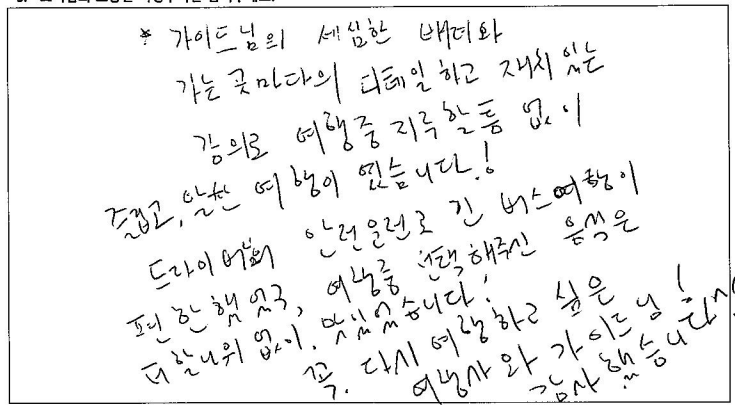 * 가이드님의 세심한 배려와
가는 곳마다의 디테일하고 재치 있는
강의로 여행중 지루할 틈 없이
즐겁고, 알찬 여행이 였습니다!
드라이버님의 안전운전로 긴 버스여행이
편안했었구, 여행중 선택해주신 음식은
더할나위 없이. 맛있었습니다!
꼭. 다시 여행하고 싶은
여행사와 가이드님!
감사했습니다